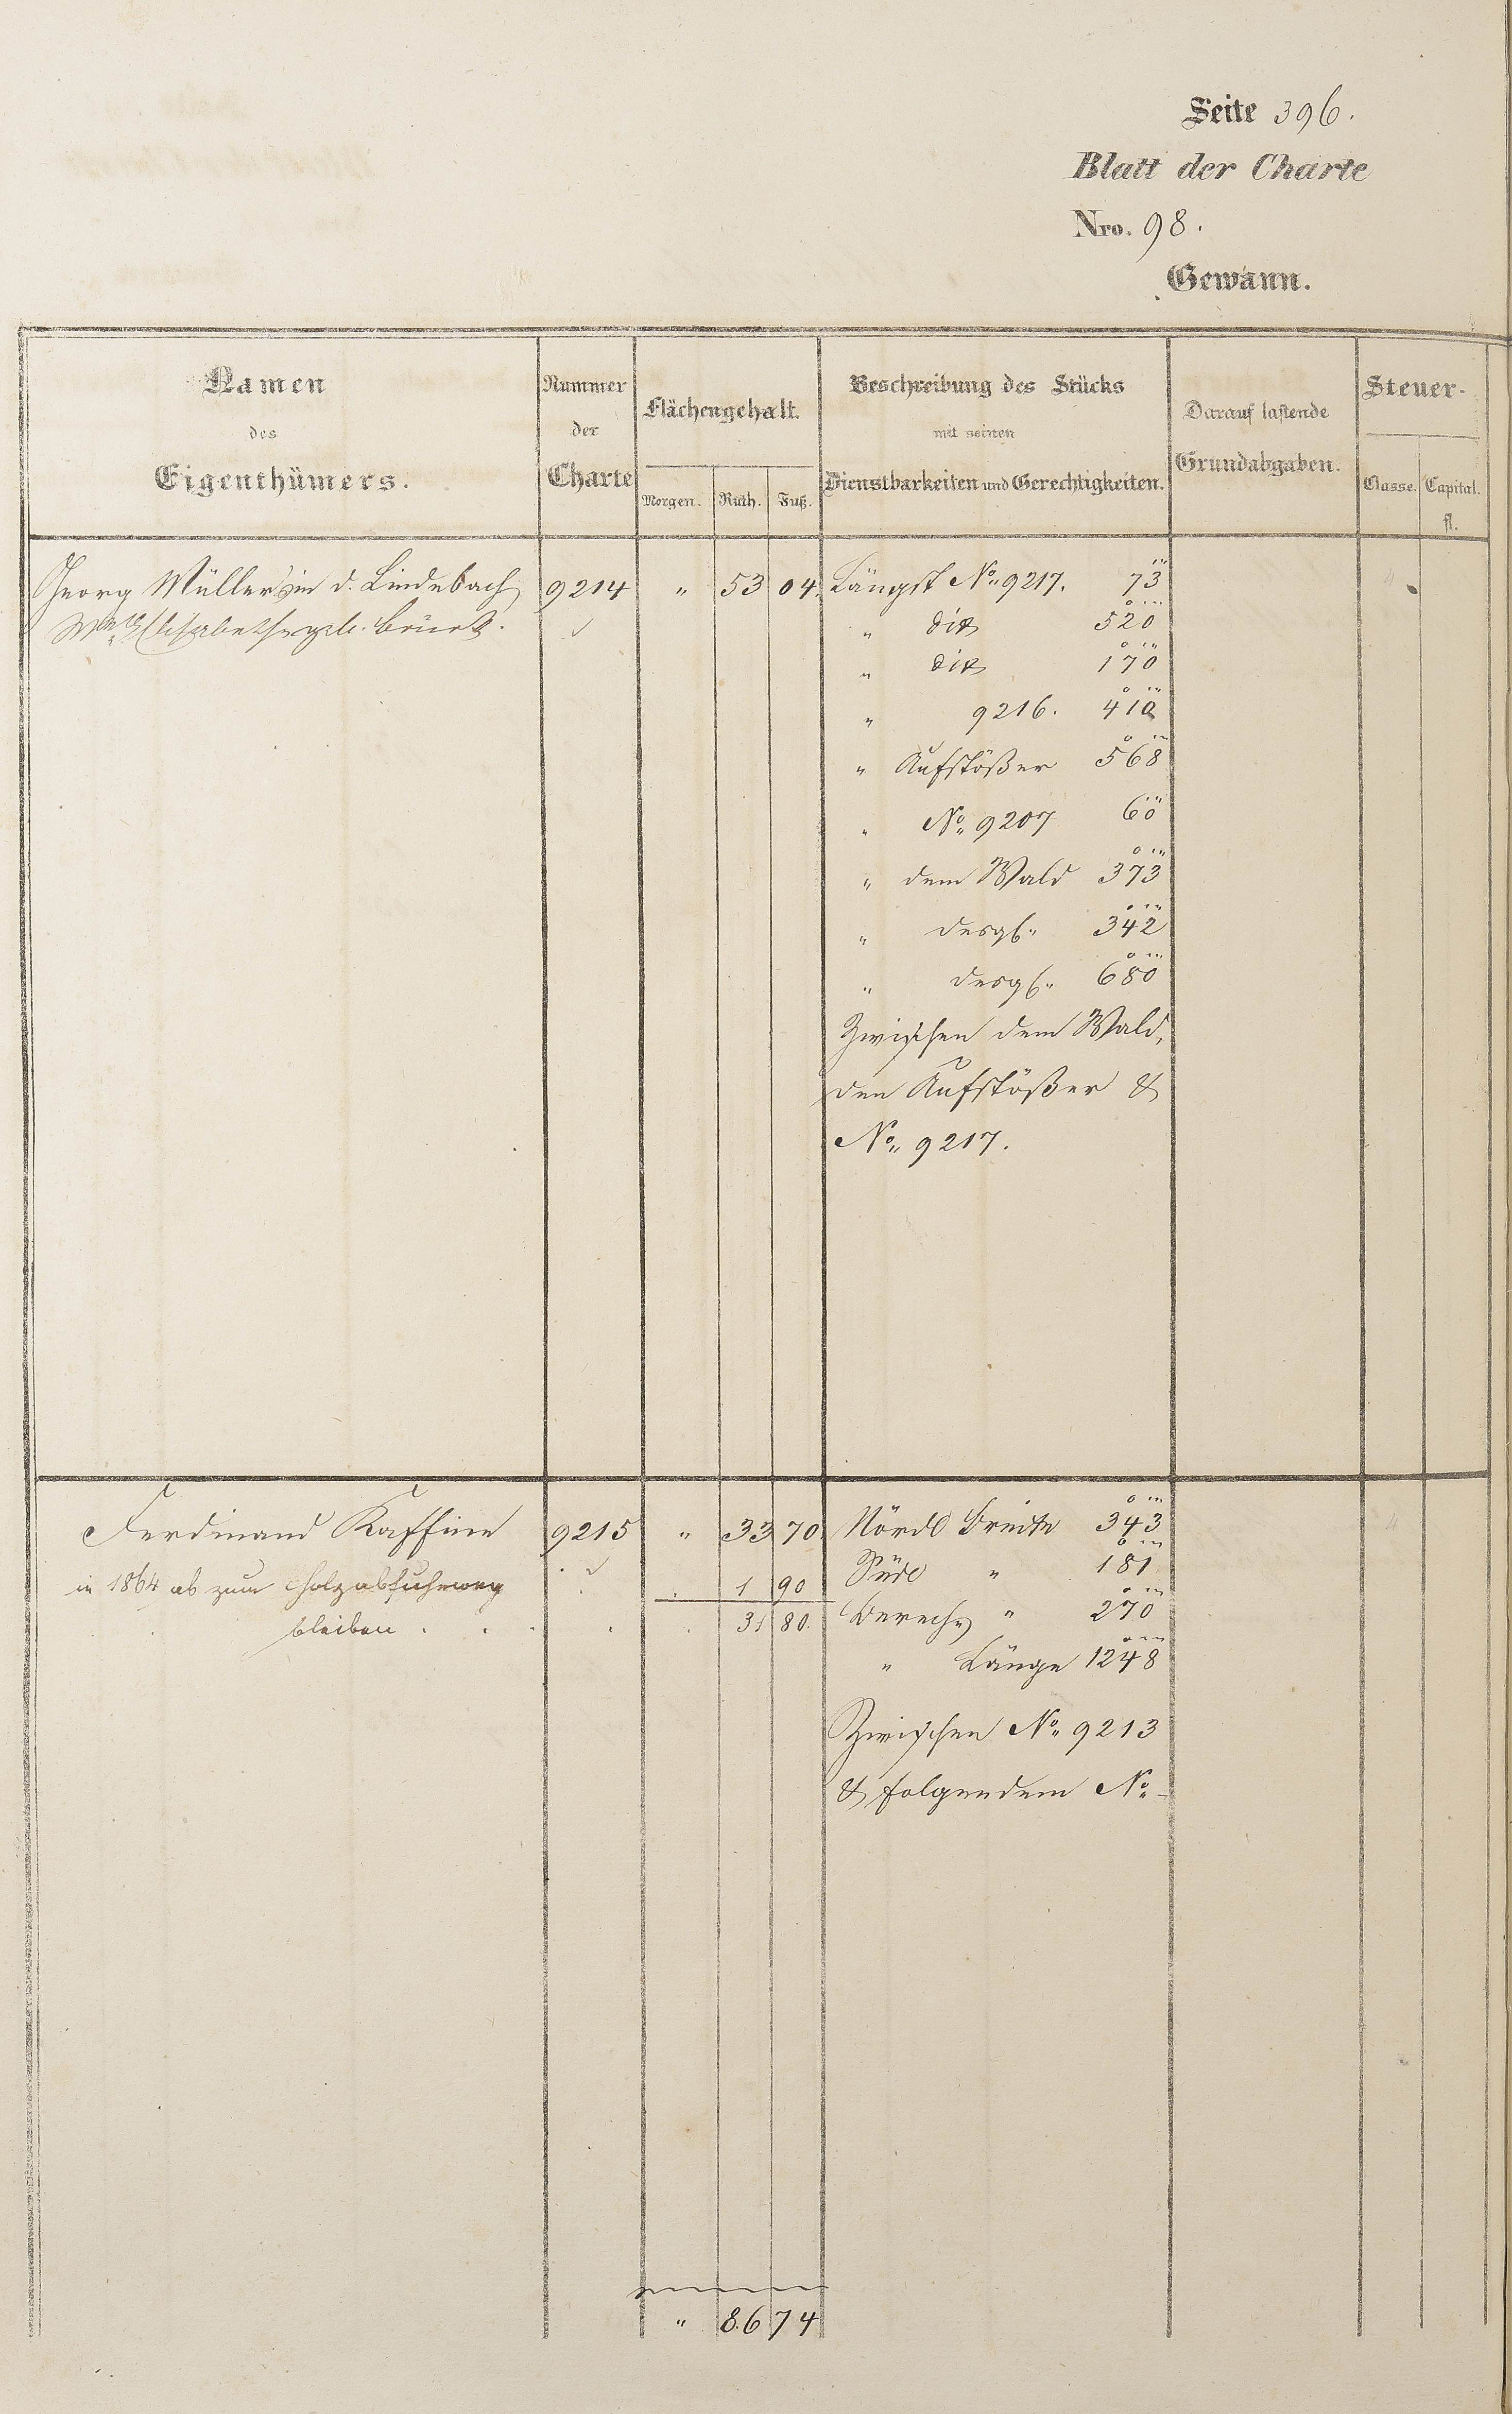 Seite 396.
Blatt der Charte
Nro. 98.
Gewann.
Namen des Eigenthümers.
Nummer der Charte
Flächengehalt.
Morgen. Ruth. Fuß.
Beschreibung des Stücks mit seinen Dienstbarkeiten und Gerechtigkeiten.
Darauf lastende Grundabgaben.
Steuer-
Classe. Capital. fl.
Georg Müller in d. Lindebach 9214 " 53 04. Längst No. 9217. 73
geb. " dito 520
" dito 170
" 9216. 410
" Aufstößer 568
" No. 9207 60
" dem Wald 373
" desgl. 342
" desgl. 680
Zwischen dem Wald,
den Aufstößer &
No. 9217.
Ferdinand Kaffine 9215 " 33 70. Nördl Breite 343
in 1864 ab zum Holzabfuhrweg . 1 90 Südl " 181
bleiben . . . . . 31 80. Berech " 270
" Länge 1248
Zwischen No. 9213
& folgendem No.
" 86 74